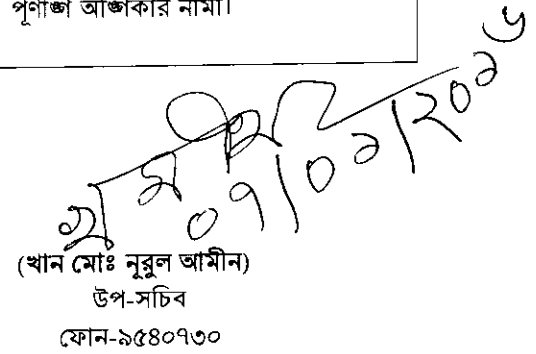 পূর্ণাঙ্গ অঙ্গিকার নামা।
০৭/০২/২০১৬
(খান মোঃ নূরুল আমীন)
উপ-সচিব
ফোন-৯৫৪০৭৩০